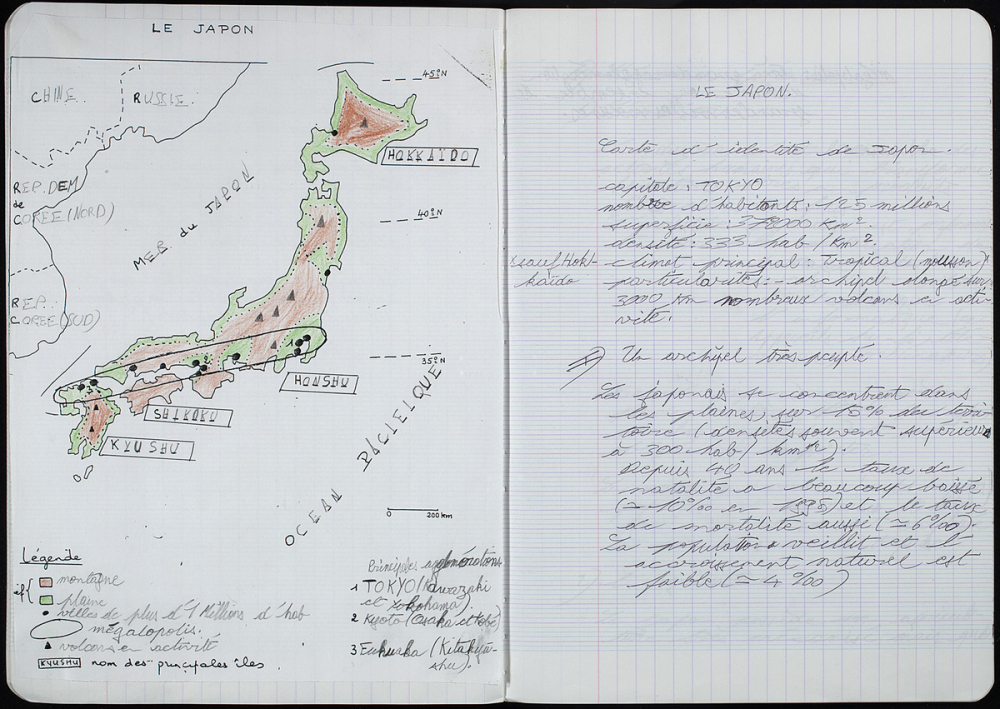 LE JAPON
45°N
CHINE.
RUSSIE.
HOKKAIDO
REP. DEM
de
COREE (NORD)
MER du JAPON
40°N
REP.
COREE (SUD)
35°N
HONSHU
SHIKOKU
KYUSHU
OCEAN PACIFIQUE
0 200 km
Légende
montagne
plaine
villes de plus d'1 Millions d'hab
mégalopolis.
volcans en activité
KYUSHU nom des principales îles.
Principales agglomérations
1 TOKYO (Kawazaki
et Yokohama).
2 Kyoto (Osaka et Kobé)
3 Fukuoka (Kitakyu-
shu).
LE JAPON.
Carte d'identité de Japon.
capitale : TOKYO
nombre d'habitants : 125 millions
superficie : 378000 Km².
densité : 333 hab / Km².
climat principal : Tropical (mousson)*
* sauf Hok-
kaïdo
particularités : - archipel alongé sur
3000 Km nombreux volcans en acti-
vité.
I) Un archipel très peuplé.
Les japonais se concentrent dans
les plaines, sur 15% du terri-
toire (densités souvent supérieur
à 300 hab / km²).
Depuis 40 ans le taux de
natalité a beaucoup baissé
(≃ 10‰ en 1995) et le taux
de mortalité aussi (≃ 6‰).
La population veillit et l'
accroissement naturel est
faible (≃ 4‰)